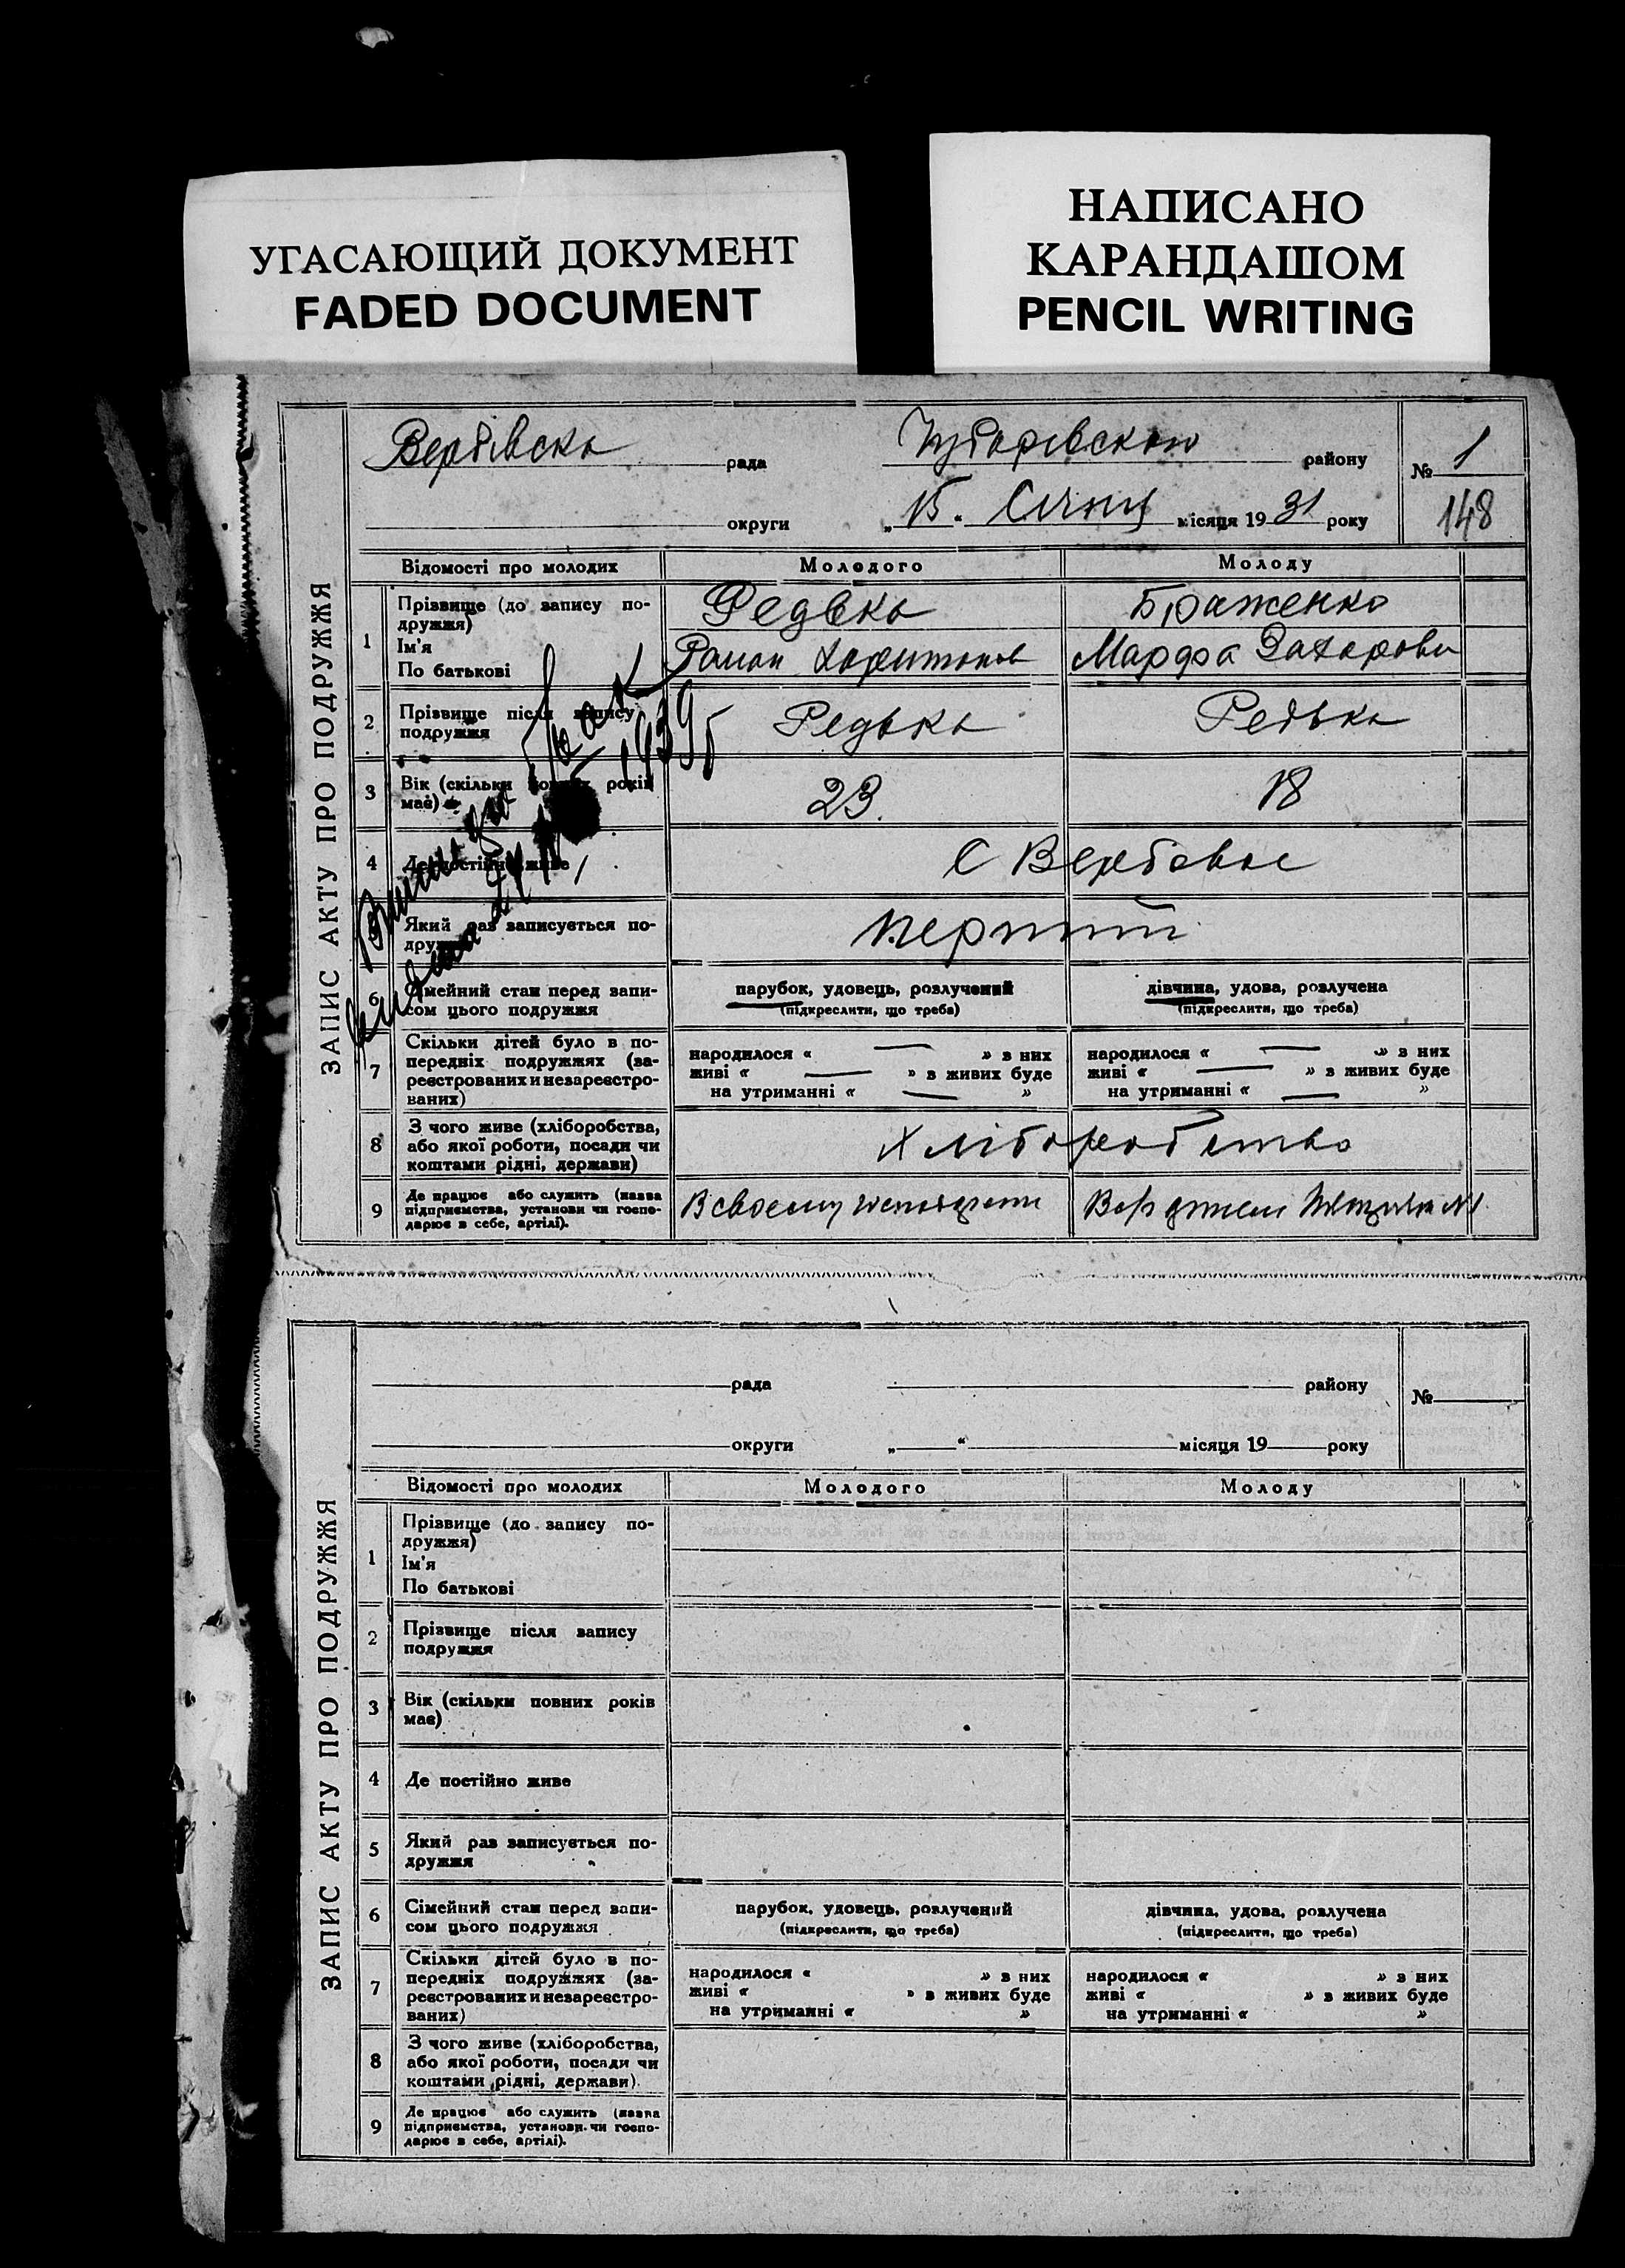 УГАСАЮЩИЙ ДОКУМЕНТ
FADED DOCUMENT
НАПИСАНО
КАРАНДАШОМ
PENCIL WRITING
ЗАПИС АКТУ ПРО ПОДРУЖЖЯ
Вербівська рада району № 1
округи „15“ Січня місяця 1931 року 148
Відомості про молодих Молодого Молоду
1 Прізвище (до запису по-
дружжя) Редька Браженко
Ім'я
По батькові Роман Харитонов Марфа Захаровн
2 Прізвище після запису
подружжя Редька Редька
3 Вік (скільки повних років
має) 23. 18
4 Де постійно живе С Вербовое
Який раз записується по-
дружжя перший
6 Сімейний стан перед запи-
сом цього подружжя
парубок, удовець, розлучений
(підкреслити, що треба)
дівчина, удова, розлучена
(підкреслити, що треба)
7 Скільки дітей було в по-
передніх подружжях (за-
реєстрованих и незареєстро-
ваних)
народилося « — » з них
живі « — » з живих буде
на утриманні « — »
народилося « — » з них
живі « — » з живих буде
на утриманні « — »
8 З чого живе (хліборобства,
або якої роботи, посади чи
коштами рідні, держави) Хліборобство
9 Де працює або служить (назва
підприємства, установи чи госпо-
дарює в себе, артілі). В своему №1
1939 р
ЗАПИС АКТУ ПРО ПОДРУЖЖЯ
рада району №
округи „ “ місяця 19 року
Відомості про молодих Молодого Молоду
1 Прізвище (до запису по-
дружжя)
Ім'я
По батькові
2 Прізвище після запису
подружжя
3 Вік (скільки повних років
має)
4 Де постійно живе
5 Який раз записується по-
дружжя
6 Сімейний стан перед запи-
сом цього подружжя
парубок, удовець, розлучений
(підкреслити, що треба)
дівчина, удова, розлучена
(підкреслити, що треба)
7 Скільки дітей було в по-
передніх подружжях (за-
реєстрованих и незареєстро-
ваних)
народилося « » з них
живі « » з живих буде
на утриманні « »
народилося « » з них
живі « » з живих буде
на утриманні « »
8 З чого живе (хліборобства,
або якої роботи, посади чи
коштами рідні, держави).
9 Де працює або служить (назва
підприємства, установи чи госпо-
дарює в себе, артілі).